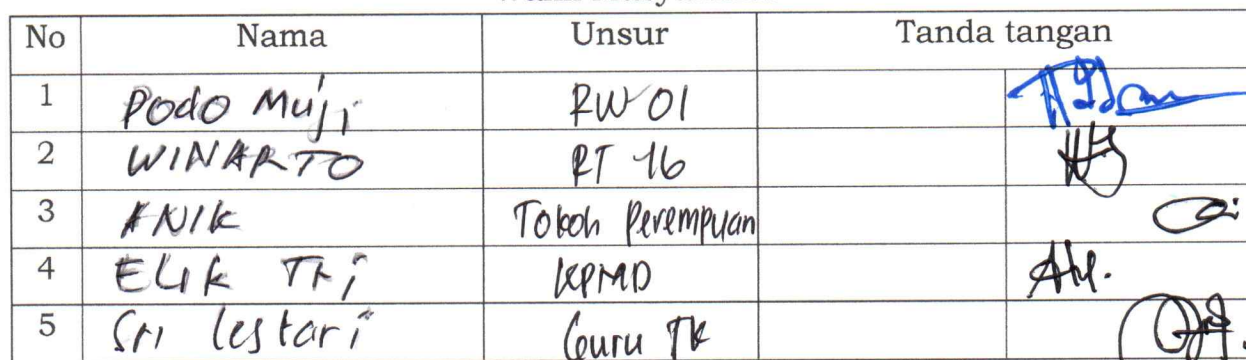 No Nama Unsur Tanda tangan
1 Podo Muji RW 01
2 WINARTO RT 16
3 ANIK Tokoh Perempuan
4 ELIK Tri KPMD
5 Sri lestari Guru TK